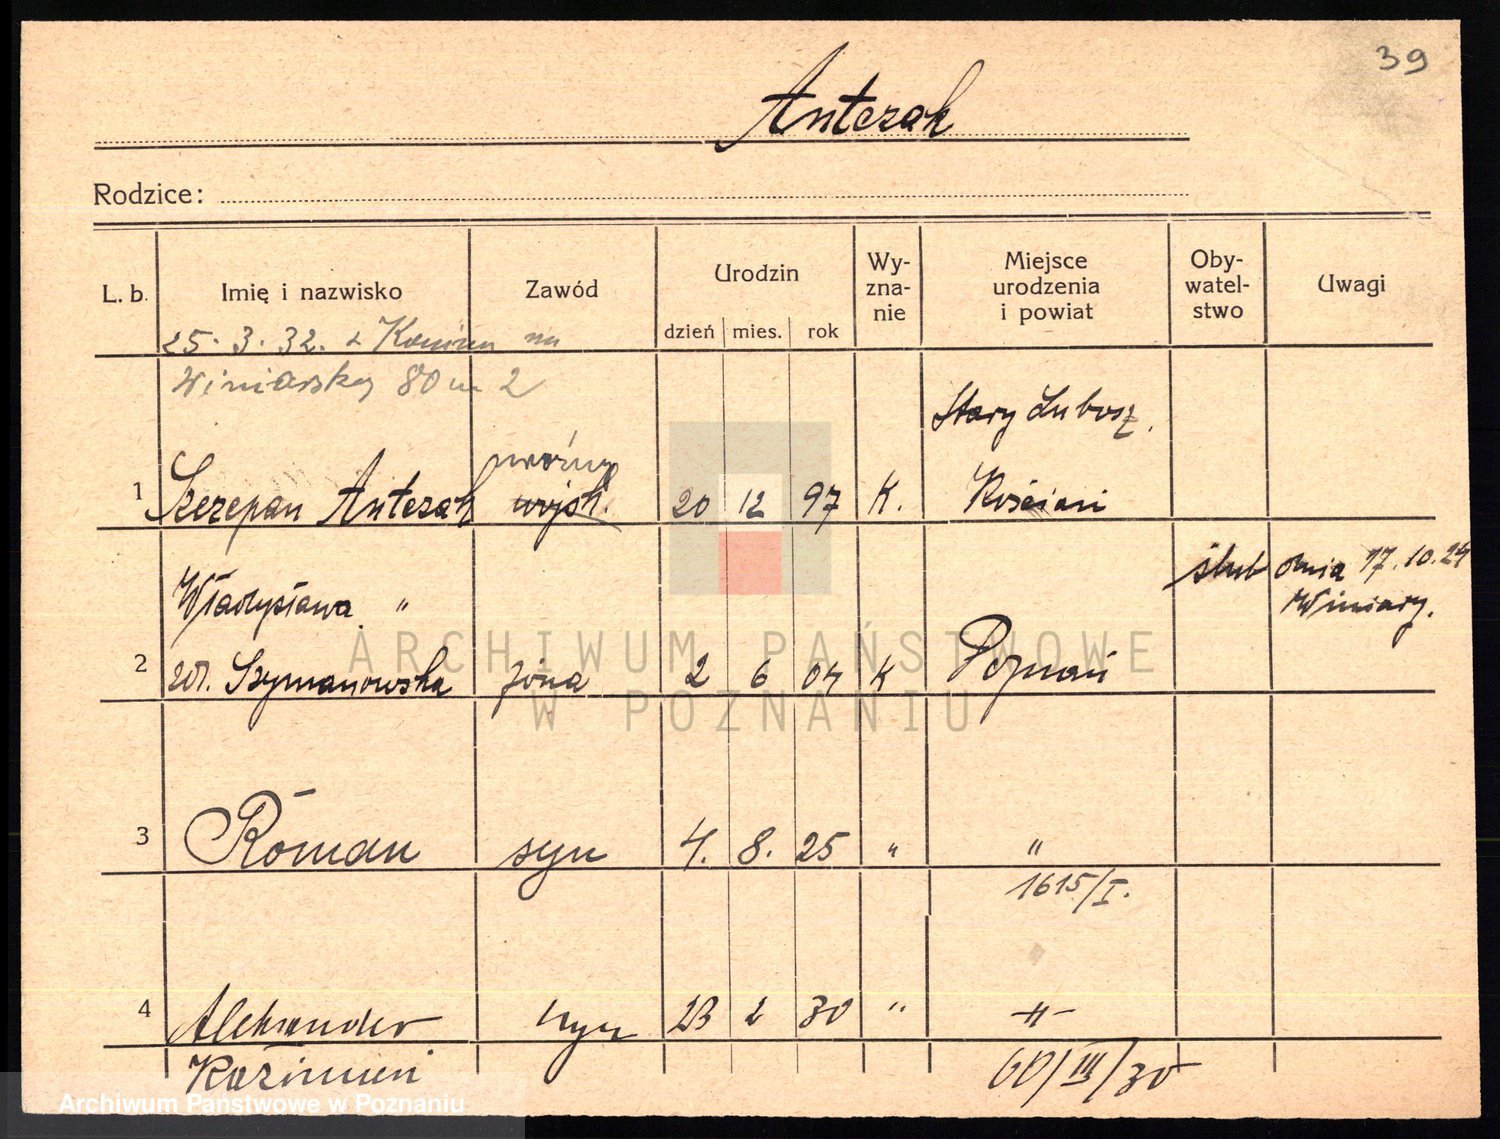 39
Antczak
Rodzice:
L. b. Imię i nazwisko Zawód Urodzin dzień mies. rok Wy-zna-nie Miejsce urodzenia i powiat Oby-watel-stwo Uwagi
25. 3. 32. z na
Winiarskej 80 m 2
Stary Lubosz.
woźny
1 Szczepan Antczak wojsk. 20 12 97 K. Kościan
ślub dnia 17.10.24
Winiary.
Władysława "
2 zd. Szymanowska żona 2 6 04 K Poznań
3 Roman syn 4. 8. 25 " "
1615/I.
4 Aleksander syn 23 2 30 " -"-
Kazimierz 60/III/30
ARCHIWUM PAŃSTWOWE
W POZNANIU
Archiwum Państwowe w Poznaniu